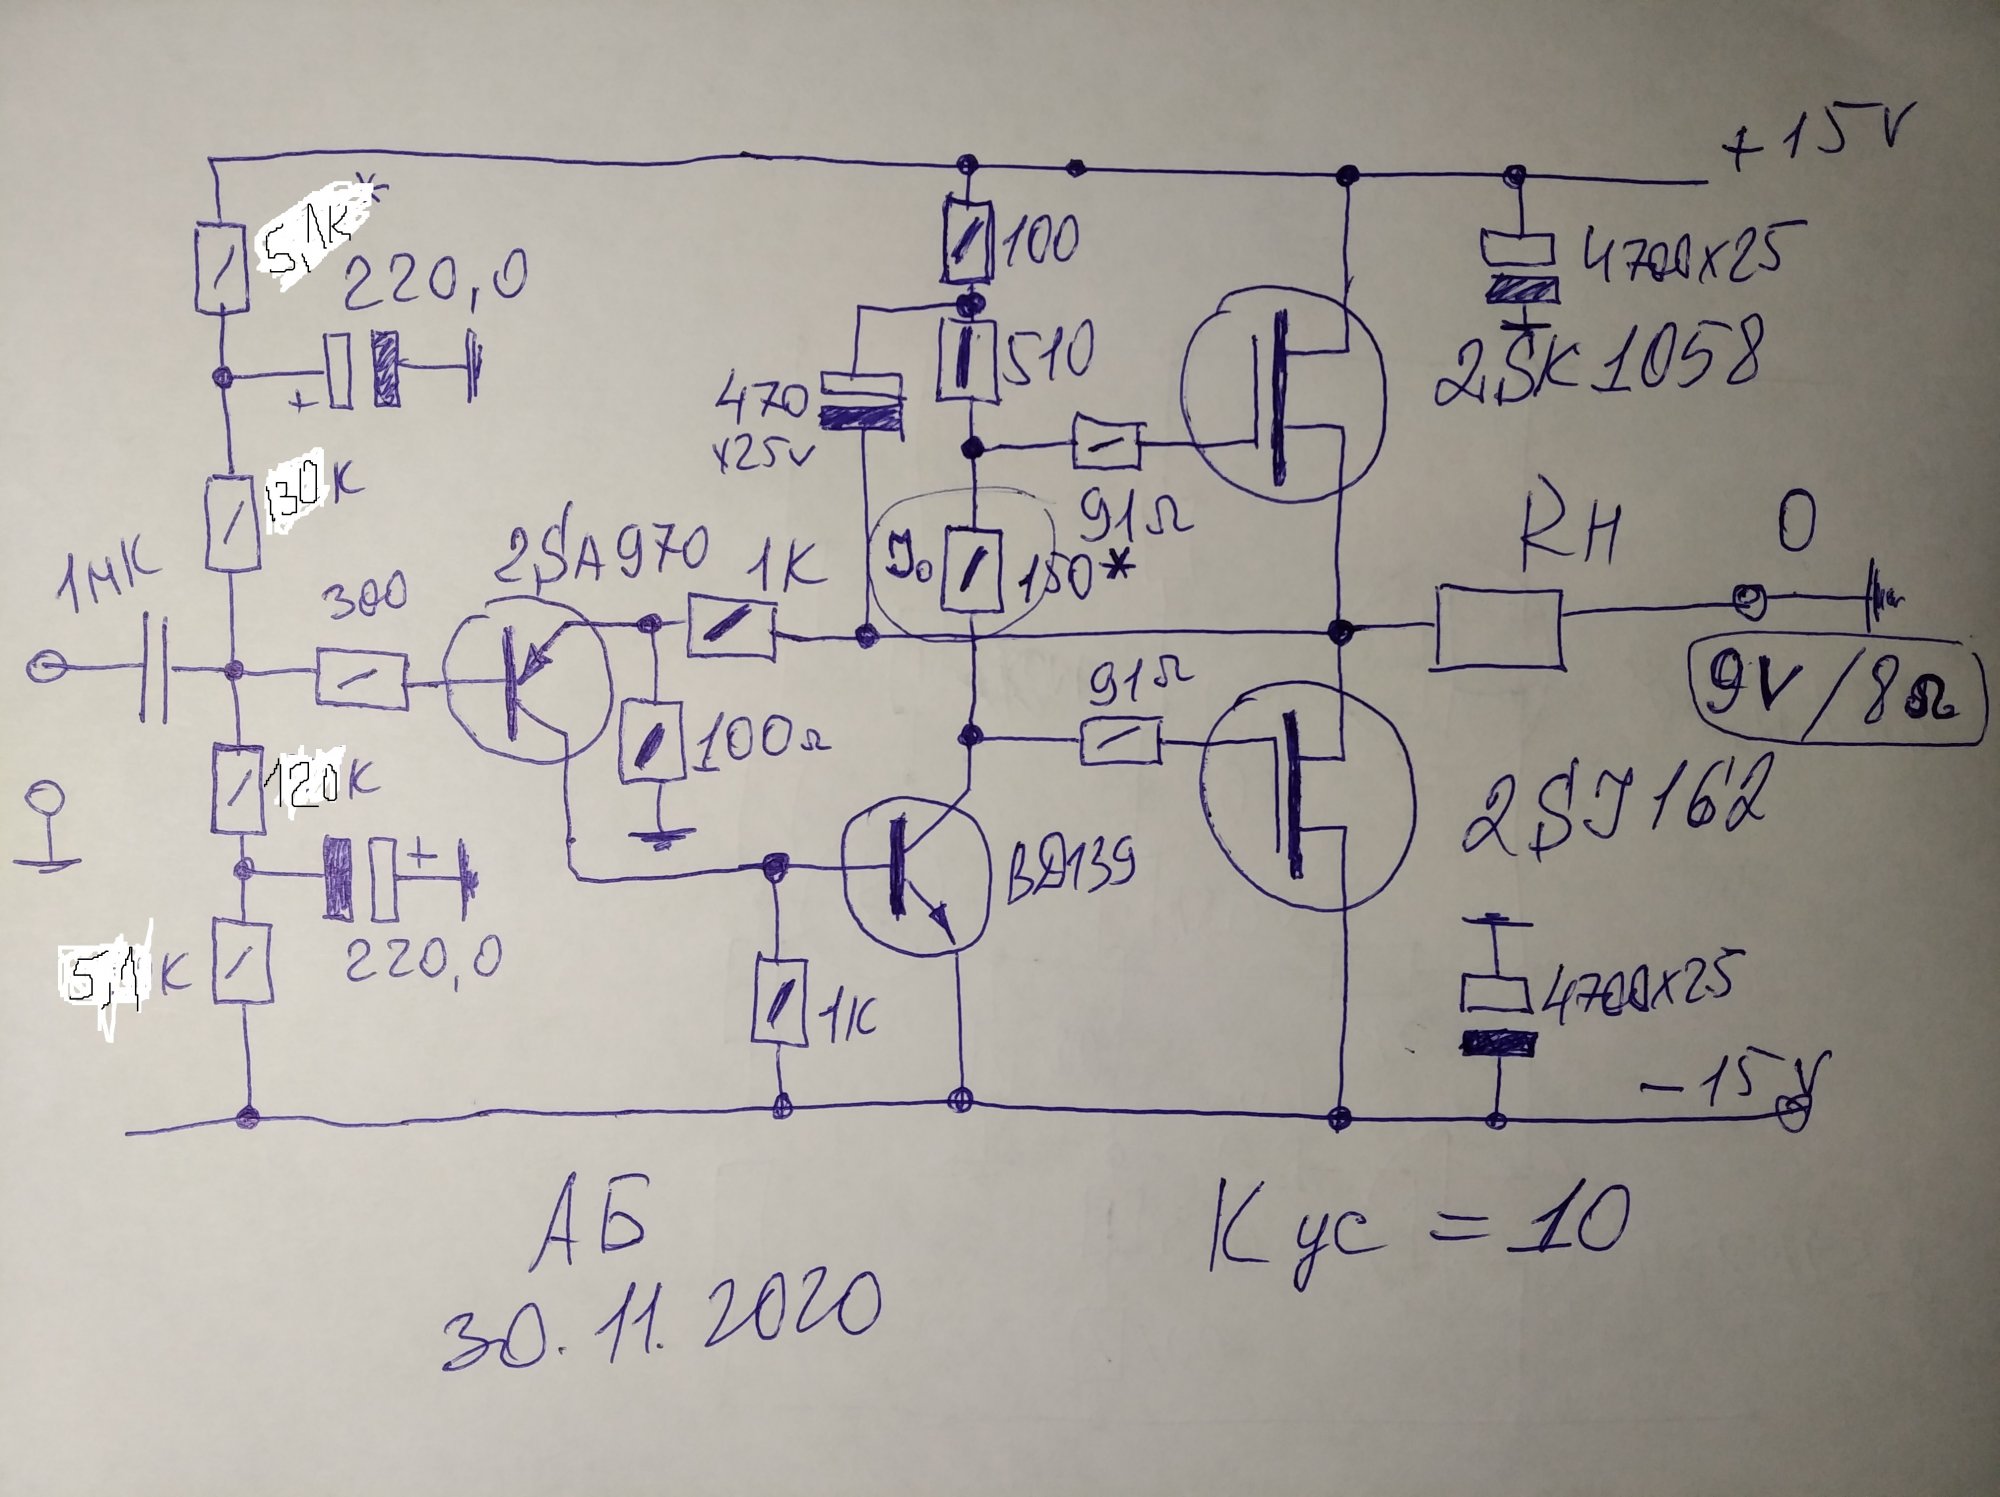 +15V
5,1K*
220,0
100
4700x25
510
2SK1058
470
x25v
130K
91Ω
1мК
300
2SA970
1K
J₀
150*
RH
0
91Ω
9V/8Ω
100Ω
120K
2SJ162
BD139
5,1K
220,0
1K
4700x25
-15V
АБ
Кус = 10
30.11.2020